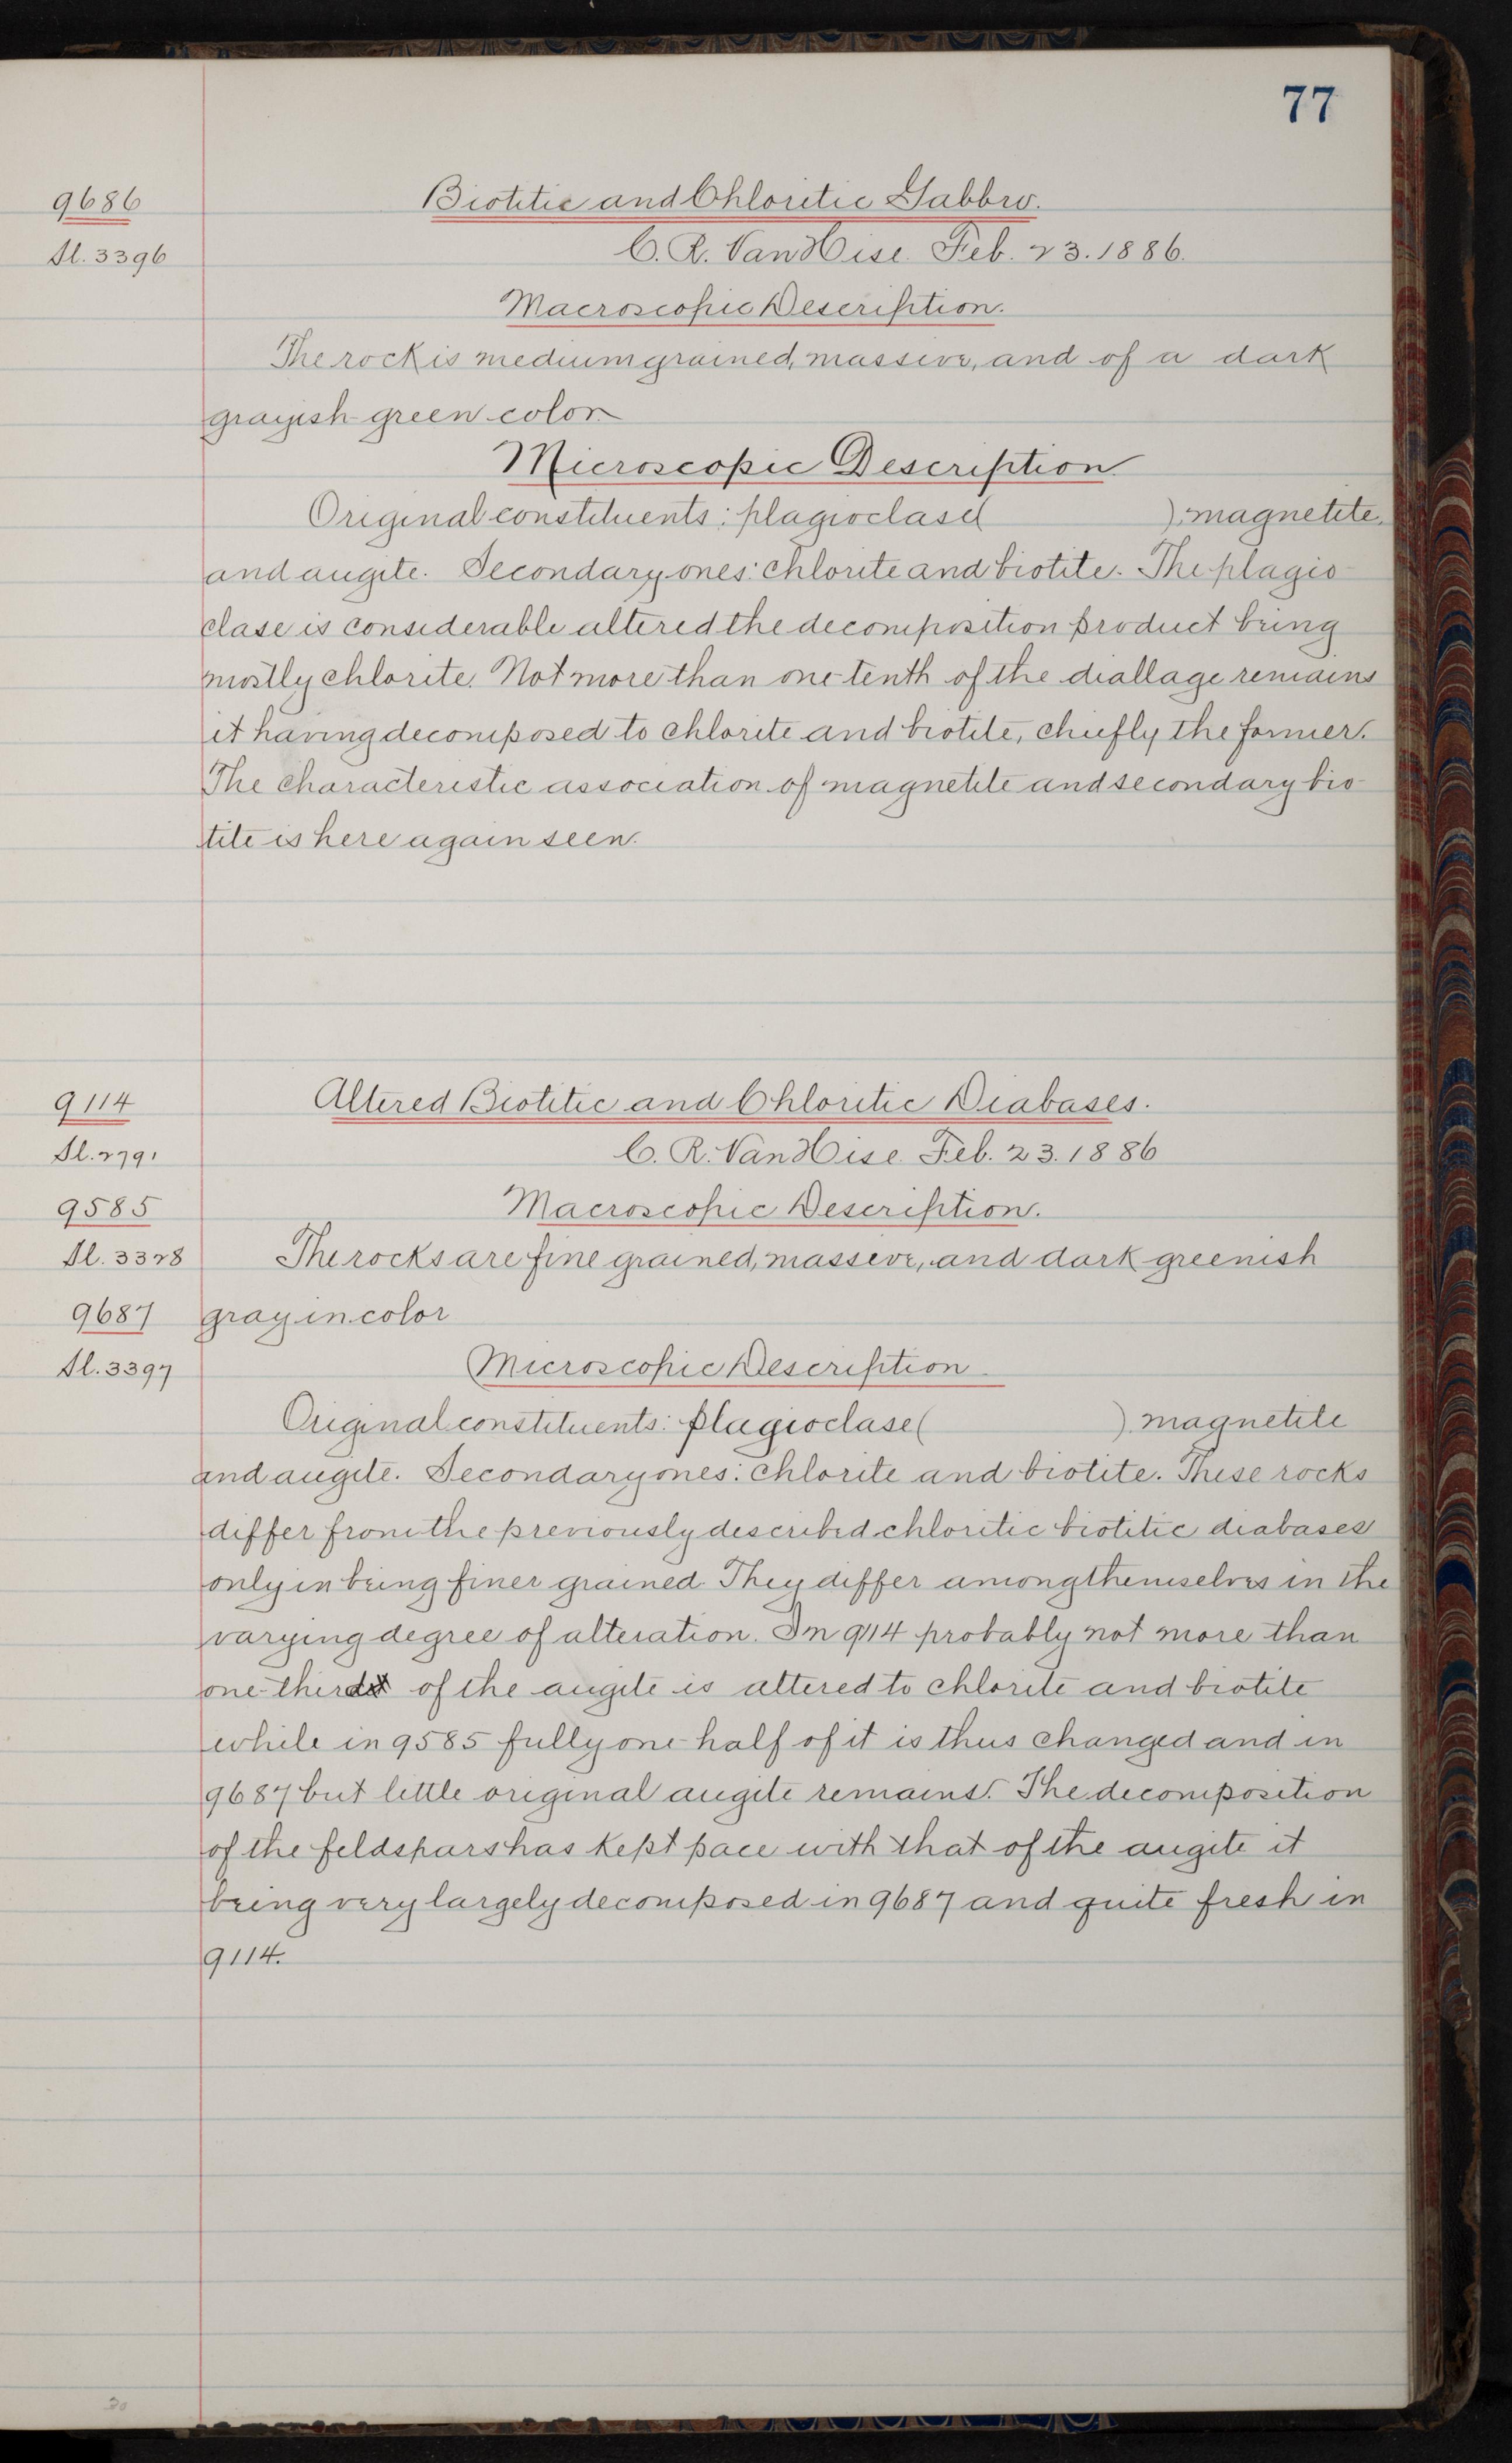 77
9686
Biotitic and Chloritic Gabbro.
Sl. 3396
C. R. Van Hise Feb. 23. 1886.
Macroscopic Description.
The rock is medium grained, massive, and of a dark
grayish green color.
Microscopic Description
Original constituents: plagioclase( ), magnetite,
and augite. Secondary ones: chlorite and biotite. The plagio-
clase is considerable altered the decomposition product being
mostly chlorite. Not more than one-tenth of the diallage remains
it having decomposed to chlorite and biotite, chiefly the former.
The characteristic association of magnetite and secondary bio-
tite is here again seen.
9114
Altered Biotitic and Chloritic Diabases.
Sl. 2791
C. R. Van Hise Feb. 23. 1886
9585
Macroscopic Description.
Sl. 3328
The rocks are fine grained, massive, and dark greenish
9687
gray in color
Sl. 3397
Microscopic Description
Original constituents: plagioclase( ) magnetite
and augite. Secondary ones: chlorite and biotite. These rocks
differ from the previously described chloritic biotitic diabases
only in being finer grained. They differ among themselves in the
varying degree of alteration. In 9114 probably not more than
one-third of the augite is altered to chlorite and biotite
while in 9585 fully one-half of it is thus changed and in
9687 but little original augite remains. The decomposition
of the feldspars has kept pace with that of the augite it
being very largely decomposed in 9687 and quite fresh in
9114.